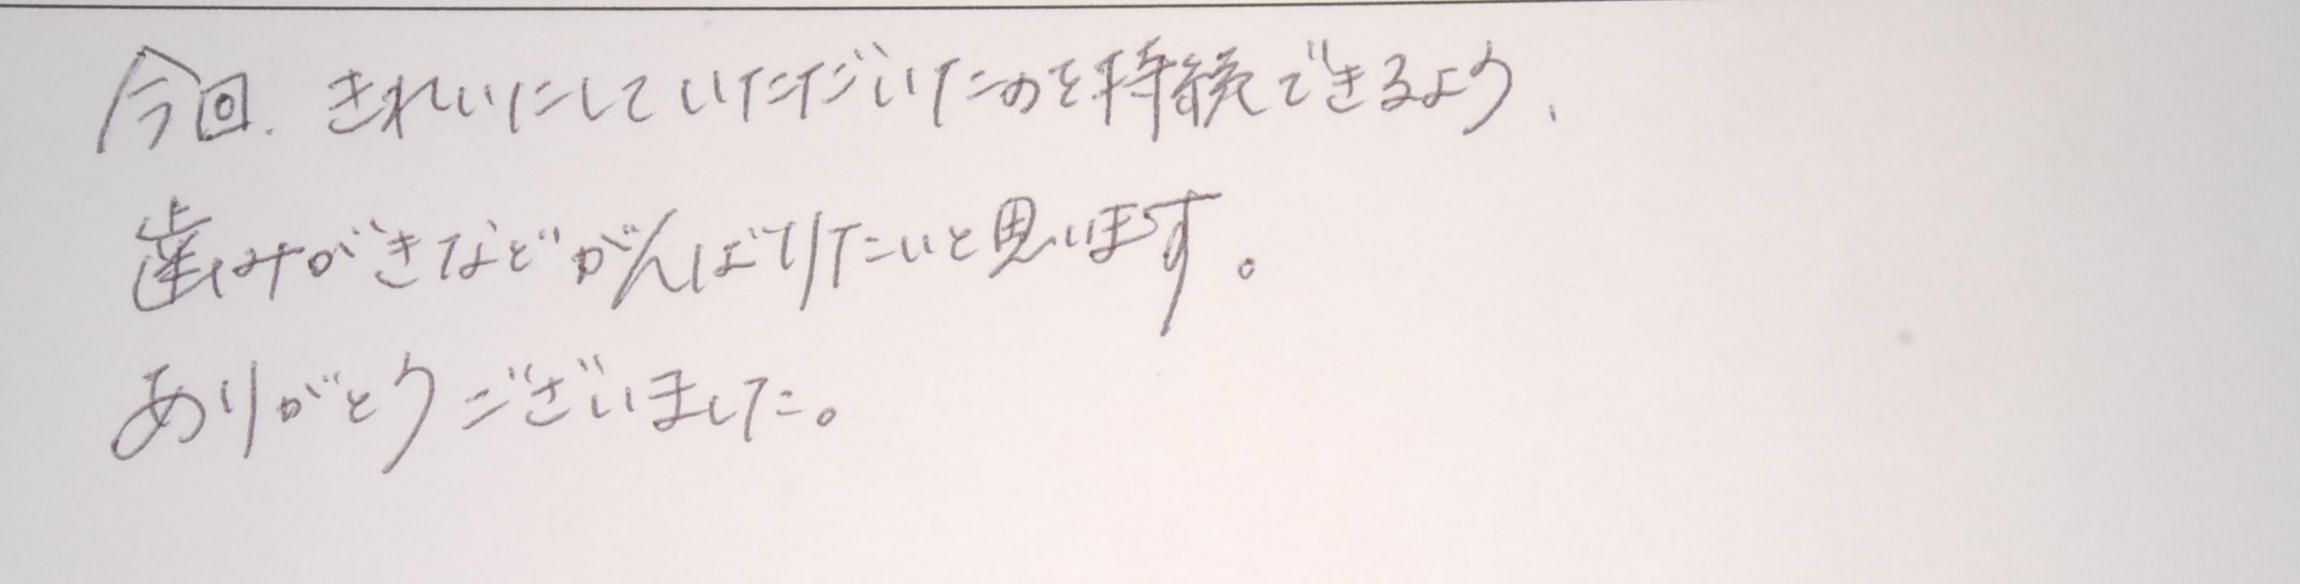 今回、きれいにしていただいたのを持続できるよう、
歯みがきなどがんばりたいと思います。
ありがとうございました。